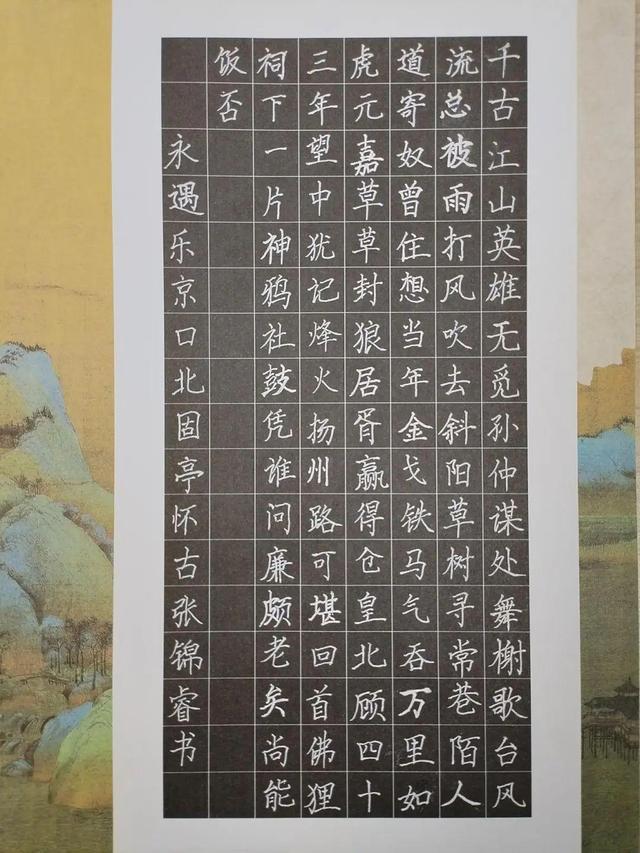 千古江山英雄无觅孙仲谋处舞榭歌台风
流总被雨打风吹去斜阳草树寻常巷陌人
道寄奴曾住想当年金戈铁马气吞万里如
虎元嘉草草封狼居胥赢得仓皇北顾四十
三年望中犹记烽火扬州路可堪回首佛狸
祠下一片神鸦社鼓凭谁问廉颇老矣尚能
饭否
永遇乐京口北固亭怀古张锦睿书